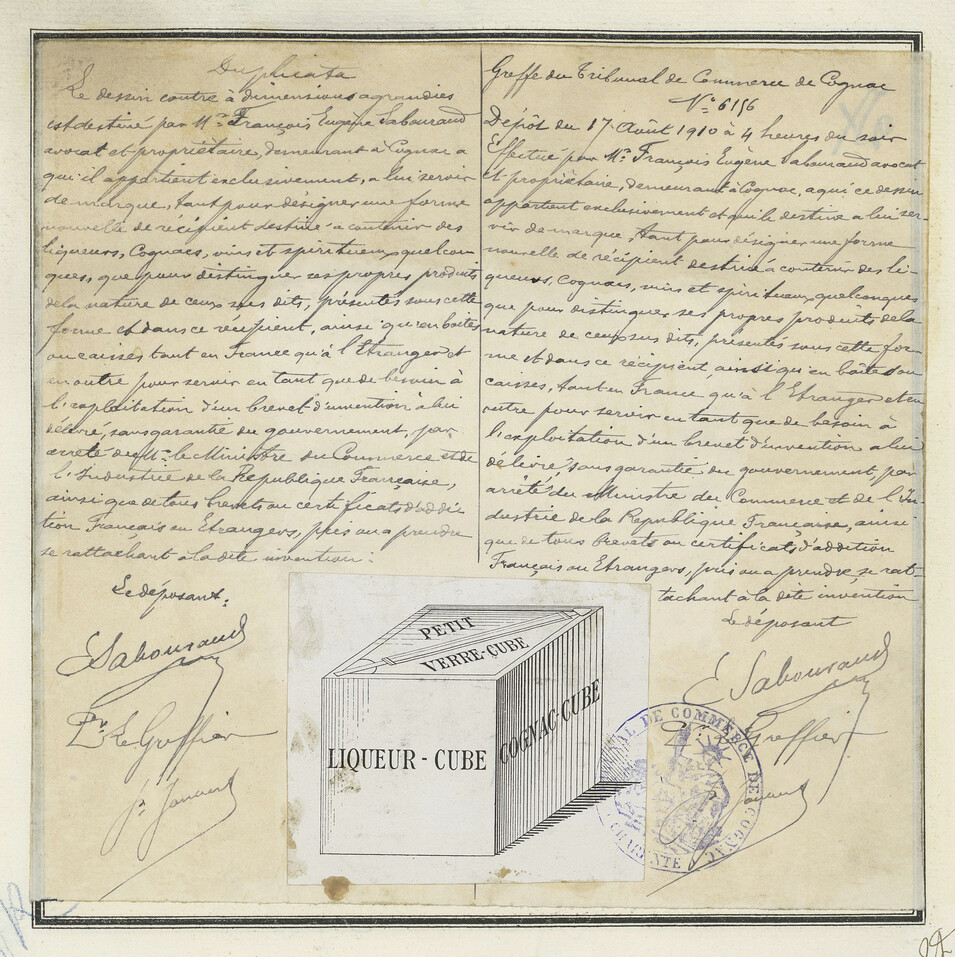 Duplicata
Le dessin contre à dimensions agrandies
est destiné par Mr. François Eugène Sabouraud
avocat et propriétaire, demeurant à Cognac a
qui il appartient exclusivement, a lui servir
de marque, tant pour désigner une forme
nouvelle de récipient destiné à contenir des
liqueurs, Cognacs, vins et spiritueux quelcon-
ques, que pour distinguer ses propres produits
de la nature de ceux sus dits, présentés sous cette
forme et dans ce récipient, ainsi qu'en boites
ou caisses tant en France qu'à l'Etranger et
en outre pour servir en tant que de besoin à
l'exploitation d'un brevet d'invention à lui
délivré, sans garantie du gouvernement, par
arrêté du Mr. le Ministre du Commerce et de
l'Industrie de la République Française,
ainsi que de tous brevets ou certificats d'addi-
tion Français ou Etrangers, pris ou a prendre
se rattachant a la dite invention.
Le déposant:
E Sabouraud
Pr. Le Greffier
Greffe du Tribunal de Commerce de Cognac
No. 6156
Dépôt du 17 Août 1910 à 4 heures du soir
Effectué par Mr. François Eugène Sabouraud avocat
et propriétaire, demeurant à Cognac, a qui ce dessin
appartient exclusivement et qui le destine a lui ser-
vir de marque, tant pour désigner une forme
nouvelle de récipient destiné à contenir des li-
queurs, Cognacs, vins et spiritueux quelconques
que pour distinguer ses propres produits de la
nature de ceux sus dits, présentés sous cette for-
me et dans ce récipient, ainsi qu'en boîtes ou
caisses, tant en France qu'à l'Etranger et en
outre pour servir en tant que de besoin à
l'exploitation d'un brevet d'invention a lui
délivré sans garantie du gouvernement, par
arrêté du Ministre du Commerce et de l'In-
dustrie de la République Française, ainsi
que de tous brevets ou certificats d'addition
Français ou Etrangers, pris ou a prendre, se rat-
tachant à la dite invention
Le déposant
E Sabouraud
Pr. Le Greffier
PETIT
VERRE-CUBE
LIQUEUR - CUBE
COGNAC-CUBE
TRIBUNAL DE COMMERCE DE COGNAC
CHARENTE